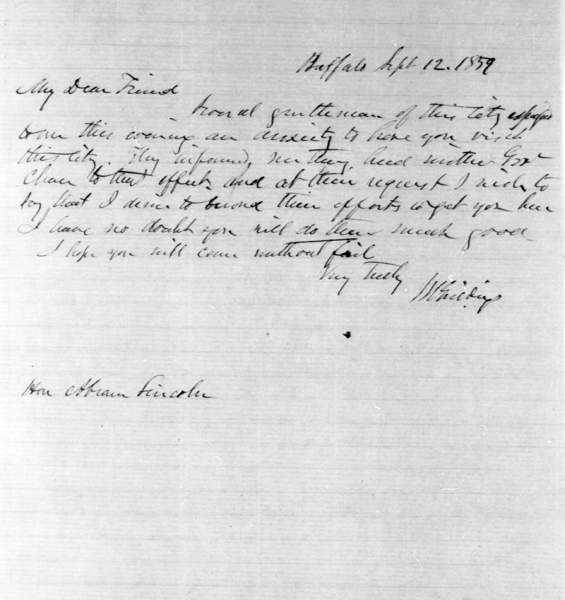 Buffalo Sept 12. 1859
My Dear Friend
Several gentleman of this City expressed
to me this evening an anxiety to have you visit
this City. They informed me they had written Govr
Chase to that effect, and at their request I wish to
say that I desire to second their efforts to get you here
I have no doubt you will do them much good
I hope you will come without fail
Very truly
J R Giddings
Hon Abram Lincoln